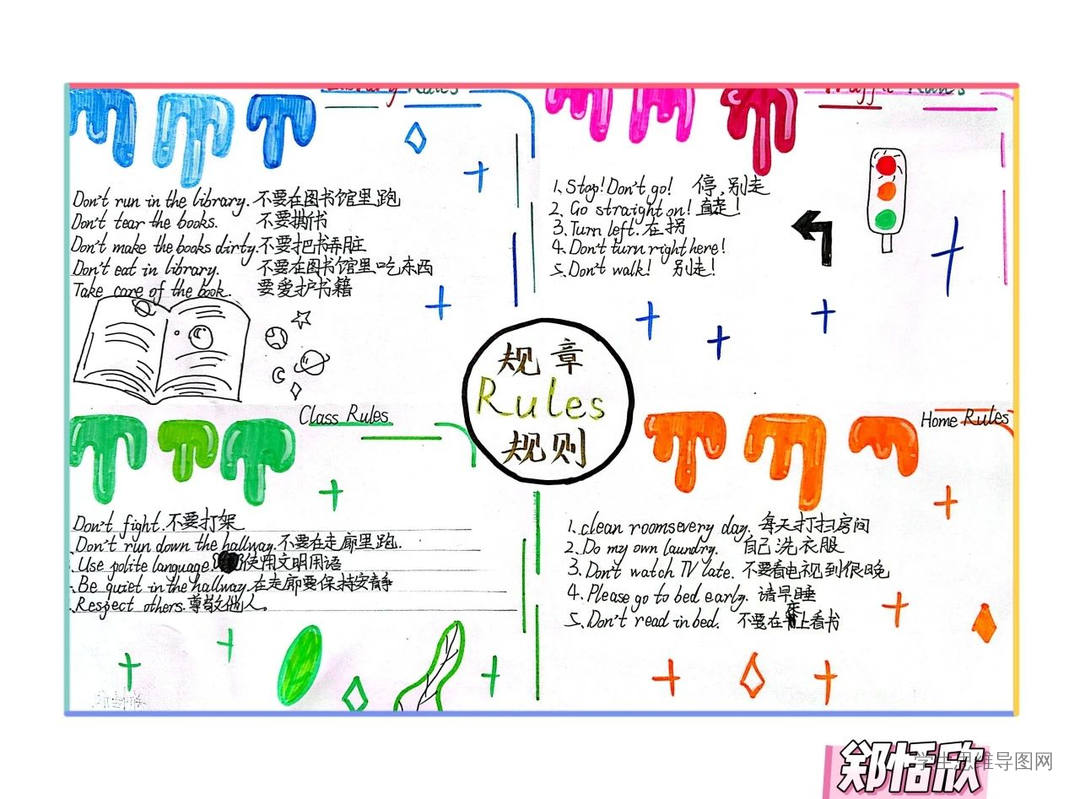 Library Rules
Don't run in the library. 不要在图书馆里跑
Don't tear the books. 不要撕书
Don't make the books dirty. 不要把书弄脏
Don't eat in library. 不要在图书馆里吃东西
Take care of the book. 要爱护书籍
Traffic Rules
1. Stop! Don't go! 停,别走
2. Go straight on! 直走!
3. Turn left. 左拐
4. Don't turn right here!
5. Don't walk! 别走!
规章
Rules
规则
Class Rules
Don't fight. 不要打架
Don't run down the hallway. 不要在走廊里跑.
Use polite language. 使用文明用语
Be quiet in the hallway. 在走廊要保持安静
Respect others. 尊敬他人.
Home Rules
1. clean rooms every day. 每天打扫房间
2. Do my own laundry. 自己洗衣服
3. Don't watch TV late. 不要看电视到很晚
4. Please go to bed early. 请早睡
5. Don't read in bed. 不要在床上看书
郑恬欣
学生思维导图网